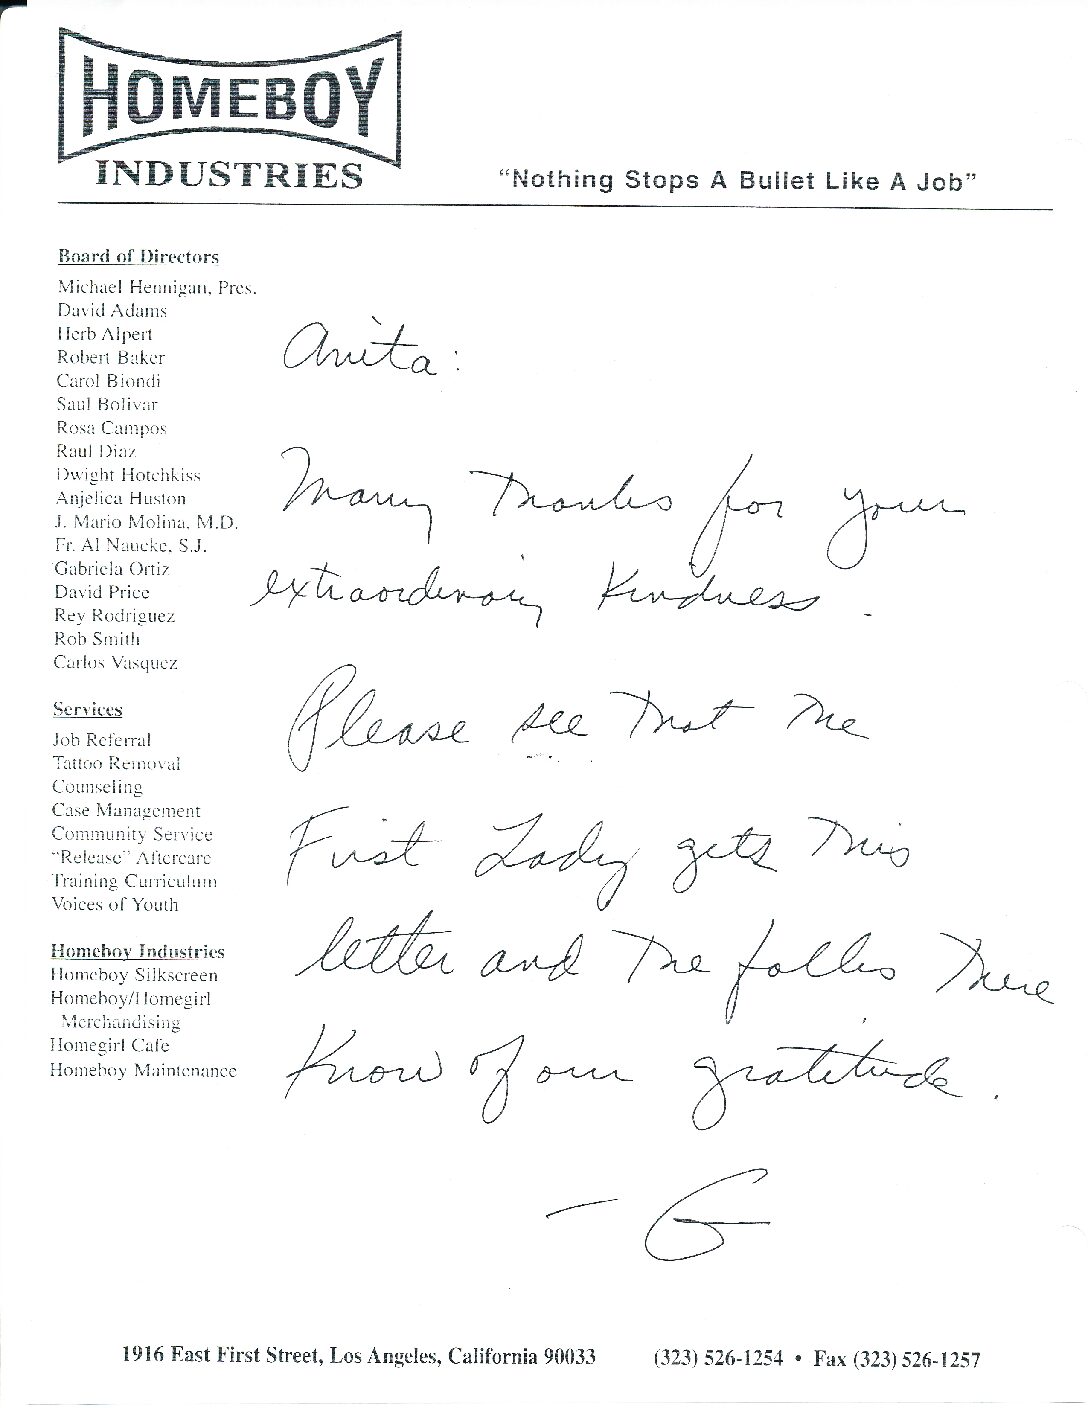 HOMEBOY
INDUSTRIES
“Nothing Stops A Bullet Like A Job”
Board of Directors
Michael Hennigan, Pres.
David Adams
Herb Alpert
Robert Baker
Carol Biondi
Saul Bolivar
Rosa Campos
Raul Diaz
Dwight Hotchkiss
Anjelica Huston
J. Mario Molina, M.D.
Fr. Al Naucke, S.J.
Gabriela Ortiz
David Price
Rey Rodriguez
Rob Smith
Carlos Vasquez
Services
Job Referral
Tattoo Removal
Counseling
Case Management
Community Service
“Release” Aftercare
Training Curriculum
Voices of Youth
Homeboy Industries
Homeboy Silkscreen
Homeboy/Homegirl
Merchandising
Homegirl Cafe
Homeboy Maintenance
Anita:
Many thanks for your
extraordinary kindness.
Please see that the
First Lady gets this
letter and the folks there
know of our gratitude.
— G
1916 East First Street, Los Angeles, California 90033 (323) 526-1254 • Fax (323) 526-1257